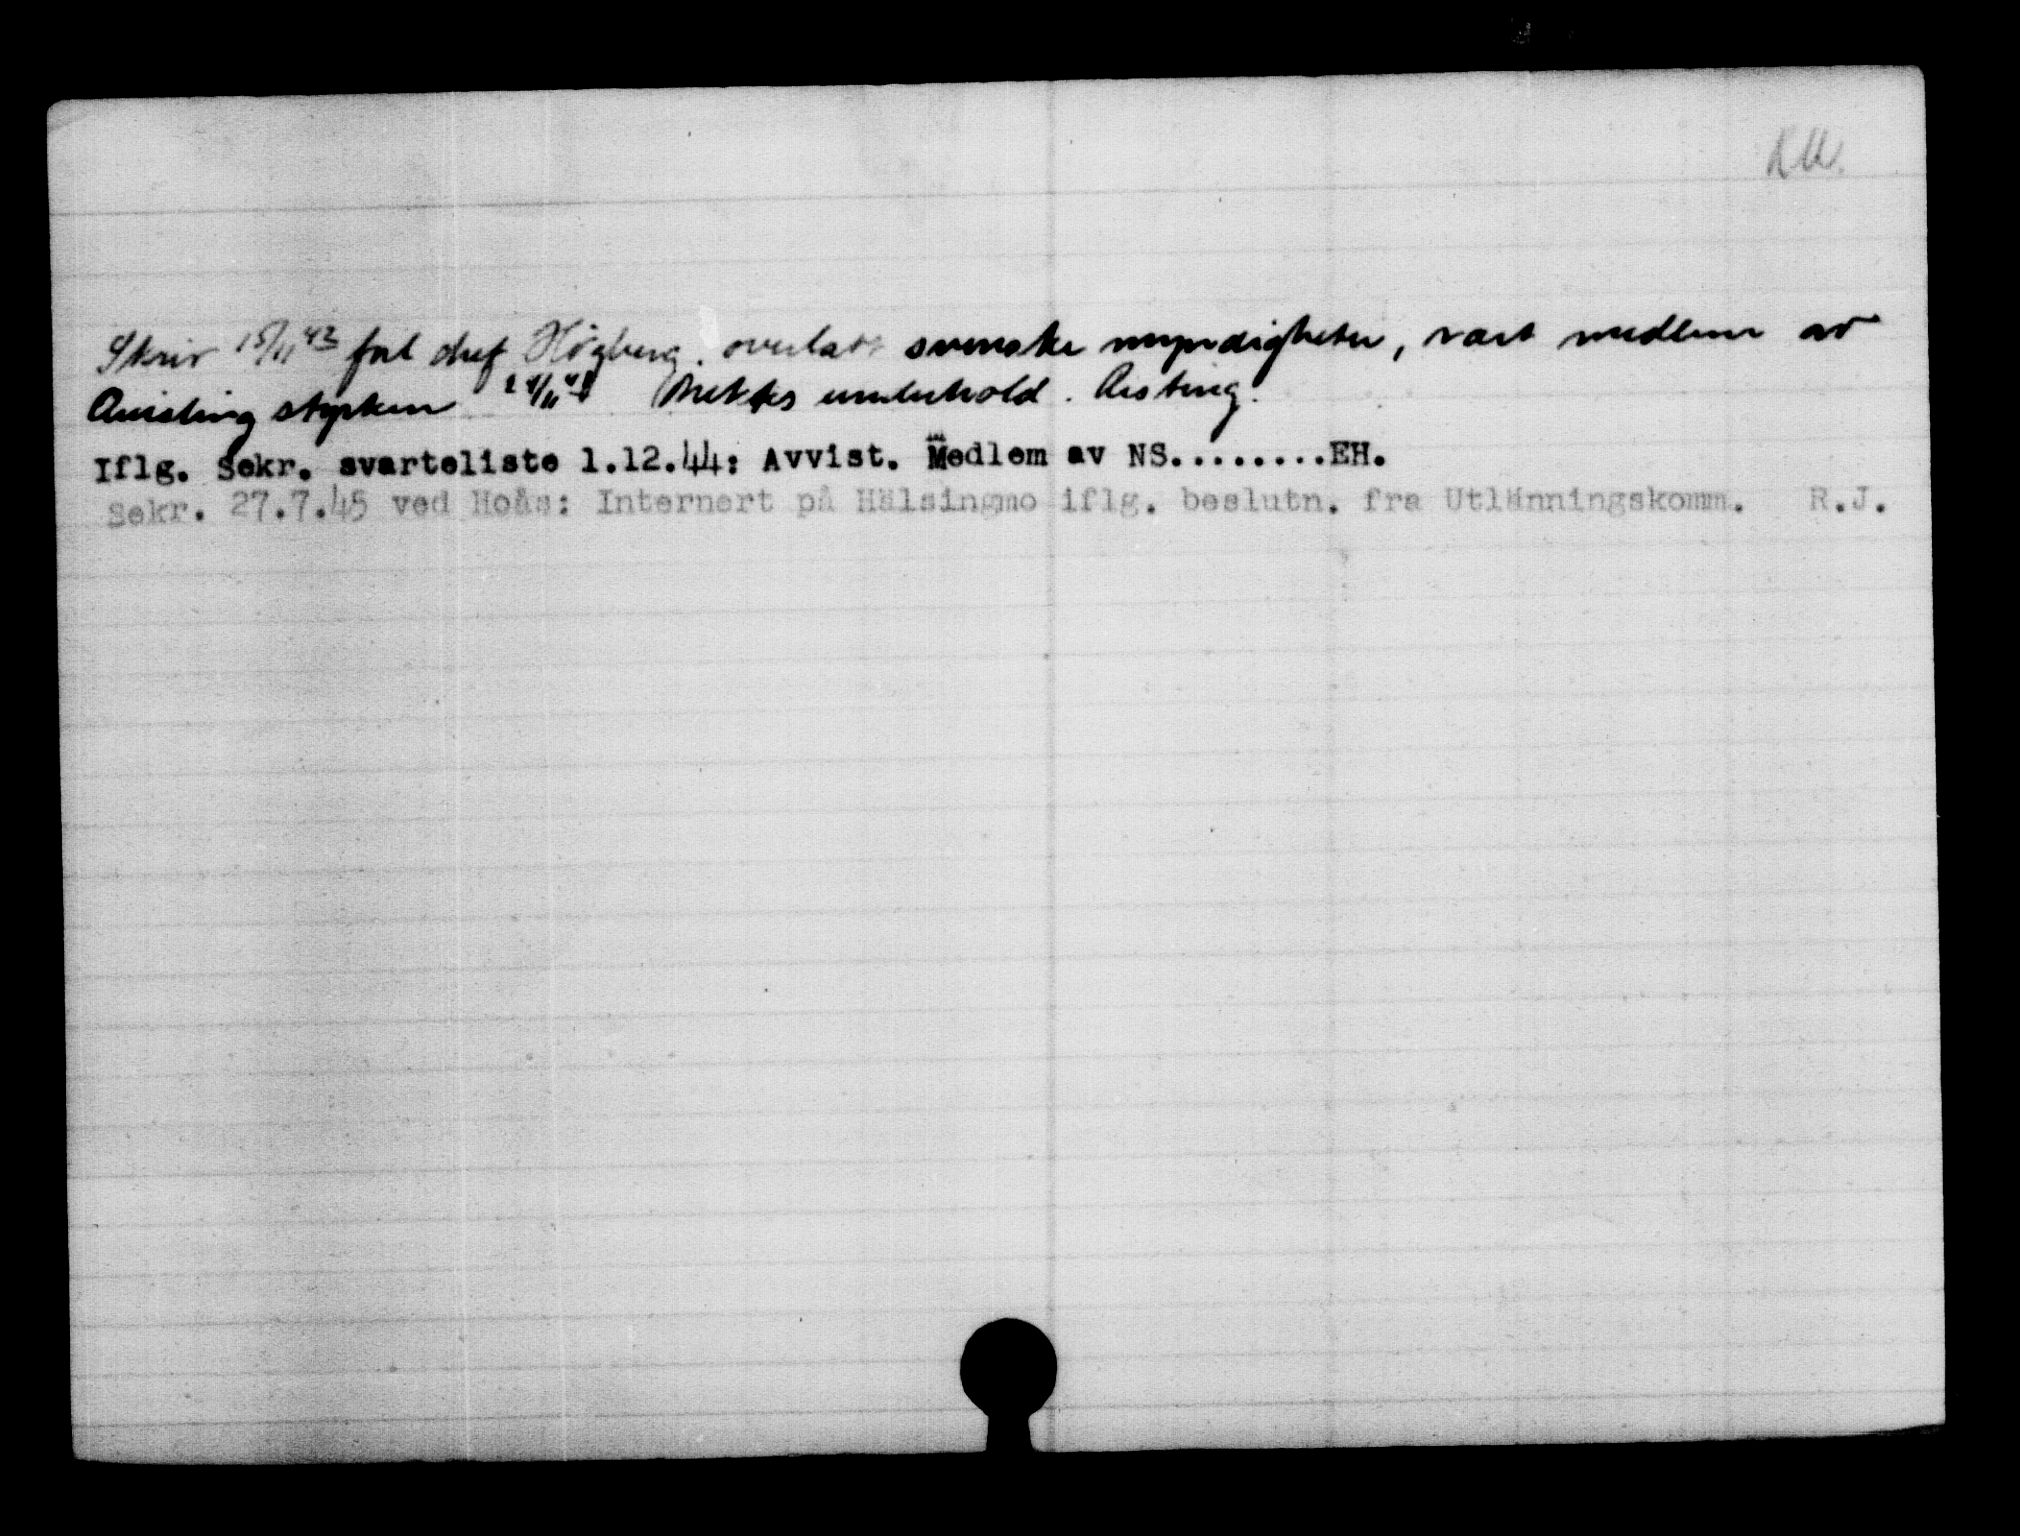 Skriv 15/11 43 fol chef Högberg. overlatt svenske myndigheter, vært medlem av
Quisling styrken 24/11 43 Nektes underhold.
Iflg. Sekr. svarteliste 1.12.44: Avvist. Medlem av NS........EH.
Sekr. 27.7.45 ved Hoås: Internert på Hälsingmo iflg. beslutn. fra Utlänningskomm. R.J.